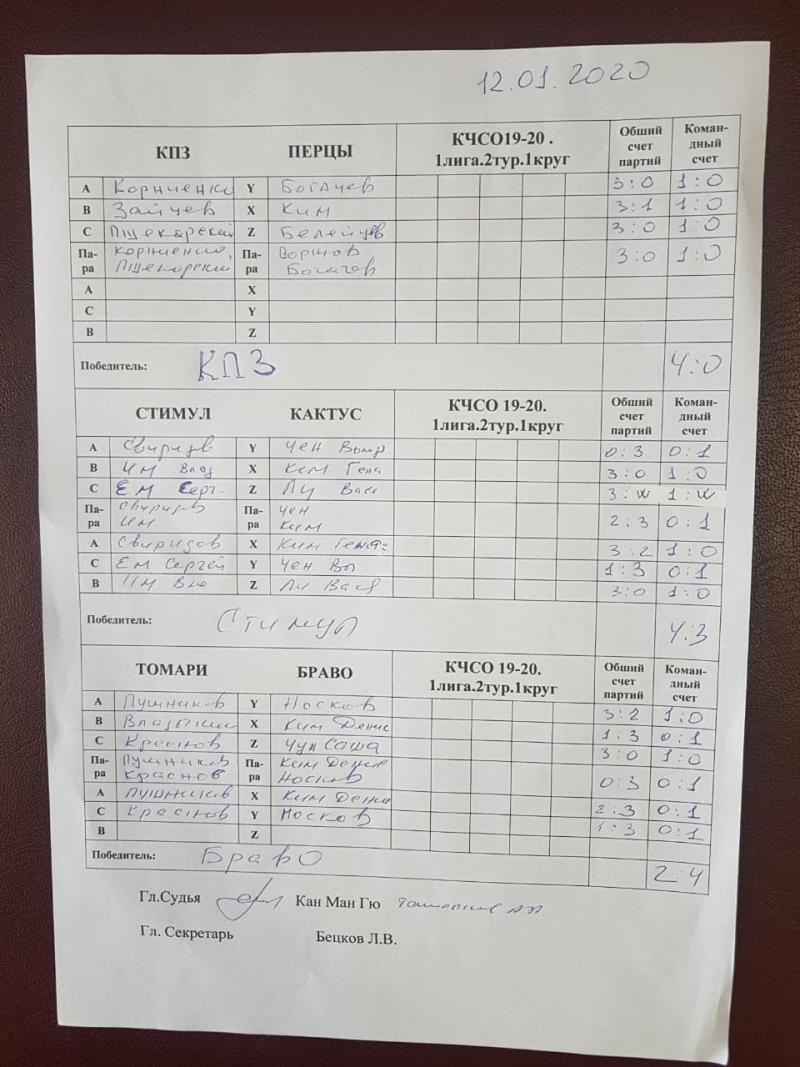 12.01.2020
КПЗ ПЕРЦЫ КЧСО19-20 . 1лига.2тур.1круг Общий счет партий Коман-дный счет
A Корниенко Y Богачев 3:0 1:0
B Зайцев X Ким 3:1 1:0
C Пшекорский Z Белейцев 3:0 1:0
Па-ра Корниенко, Пшекорский Па-ра Воринов Богачев 3:0 1:0
A X
C Y
B Z
Победитель: КПЗ 4:0
СТИМУЛ КАКТУС КЧСО 19-20. 1лига.2тур.1круг Общий счет партий Коман-дный счет
A Свиридов Y Чен 0:3 0:1
B Им Влад X Ким Гена 3:0 1:0
C Ем Серг. Z Ли Вася 3:W 1:W
Па-ра Свиридов Им Па-ра Чен Ким 2:3 0:1
A Свиридов X Ким Гена 3:2 1:0
C Ем Сергей Y Чен Вы 1:3 0:1
B Им Z Ли Вася 3:0 1:0
Победитель: Стимул 4:3
ТОМАРИ БРАВО КЧСО 19-20. 1лига.2тур.1круг Общий счет партий Коман-дный счет
A Пушников Y Носков 3:2 1:0
B Владыкин X Ким Денис 1:3 0:1
C Краснов Z Чун Саша 3:0 1:0
Па-ра Пушников Краснов Па-ра Ким Денис Носков 0:3 0:1
A Пушников X Ким Денис 2:3 0:1
C Краснов Y Носков 1:3 0:1
B Z
Победитель: Браво 2:4
Гл.Судья Кан Ман Гю
Гл. Секретарь Бецков Л.В.